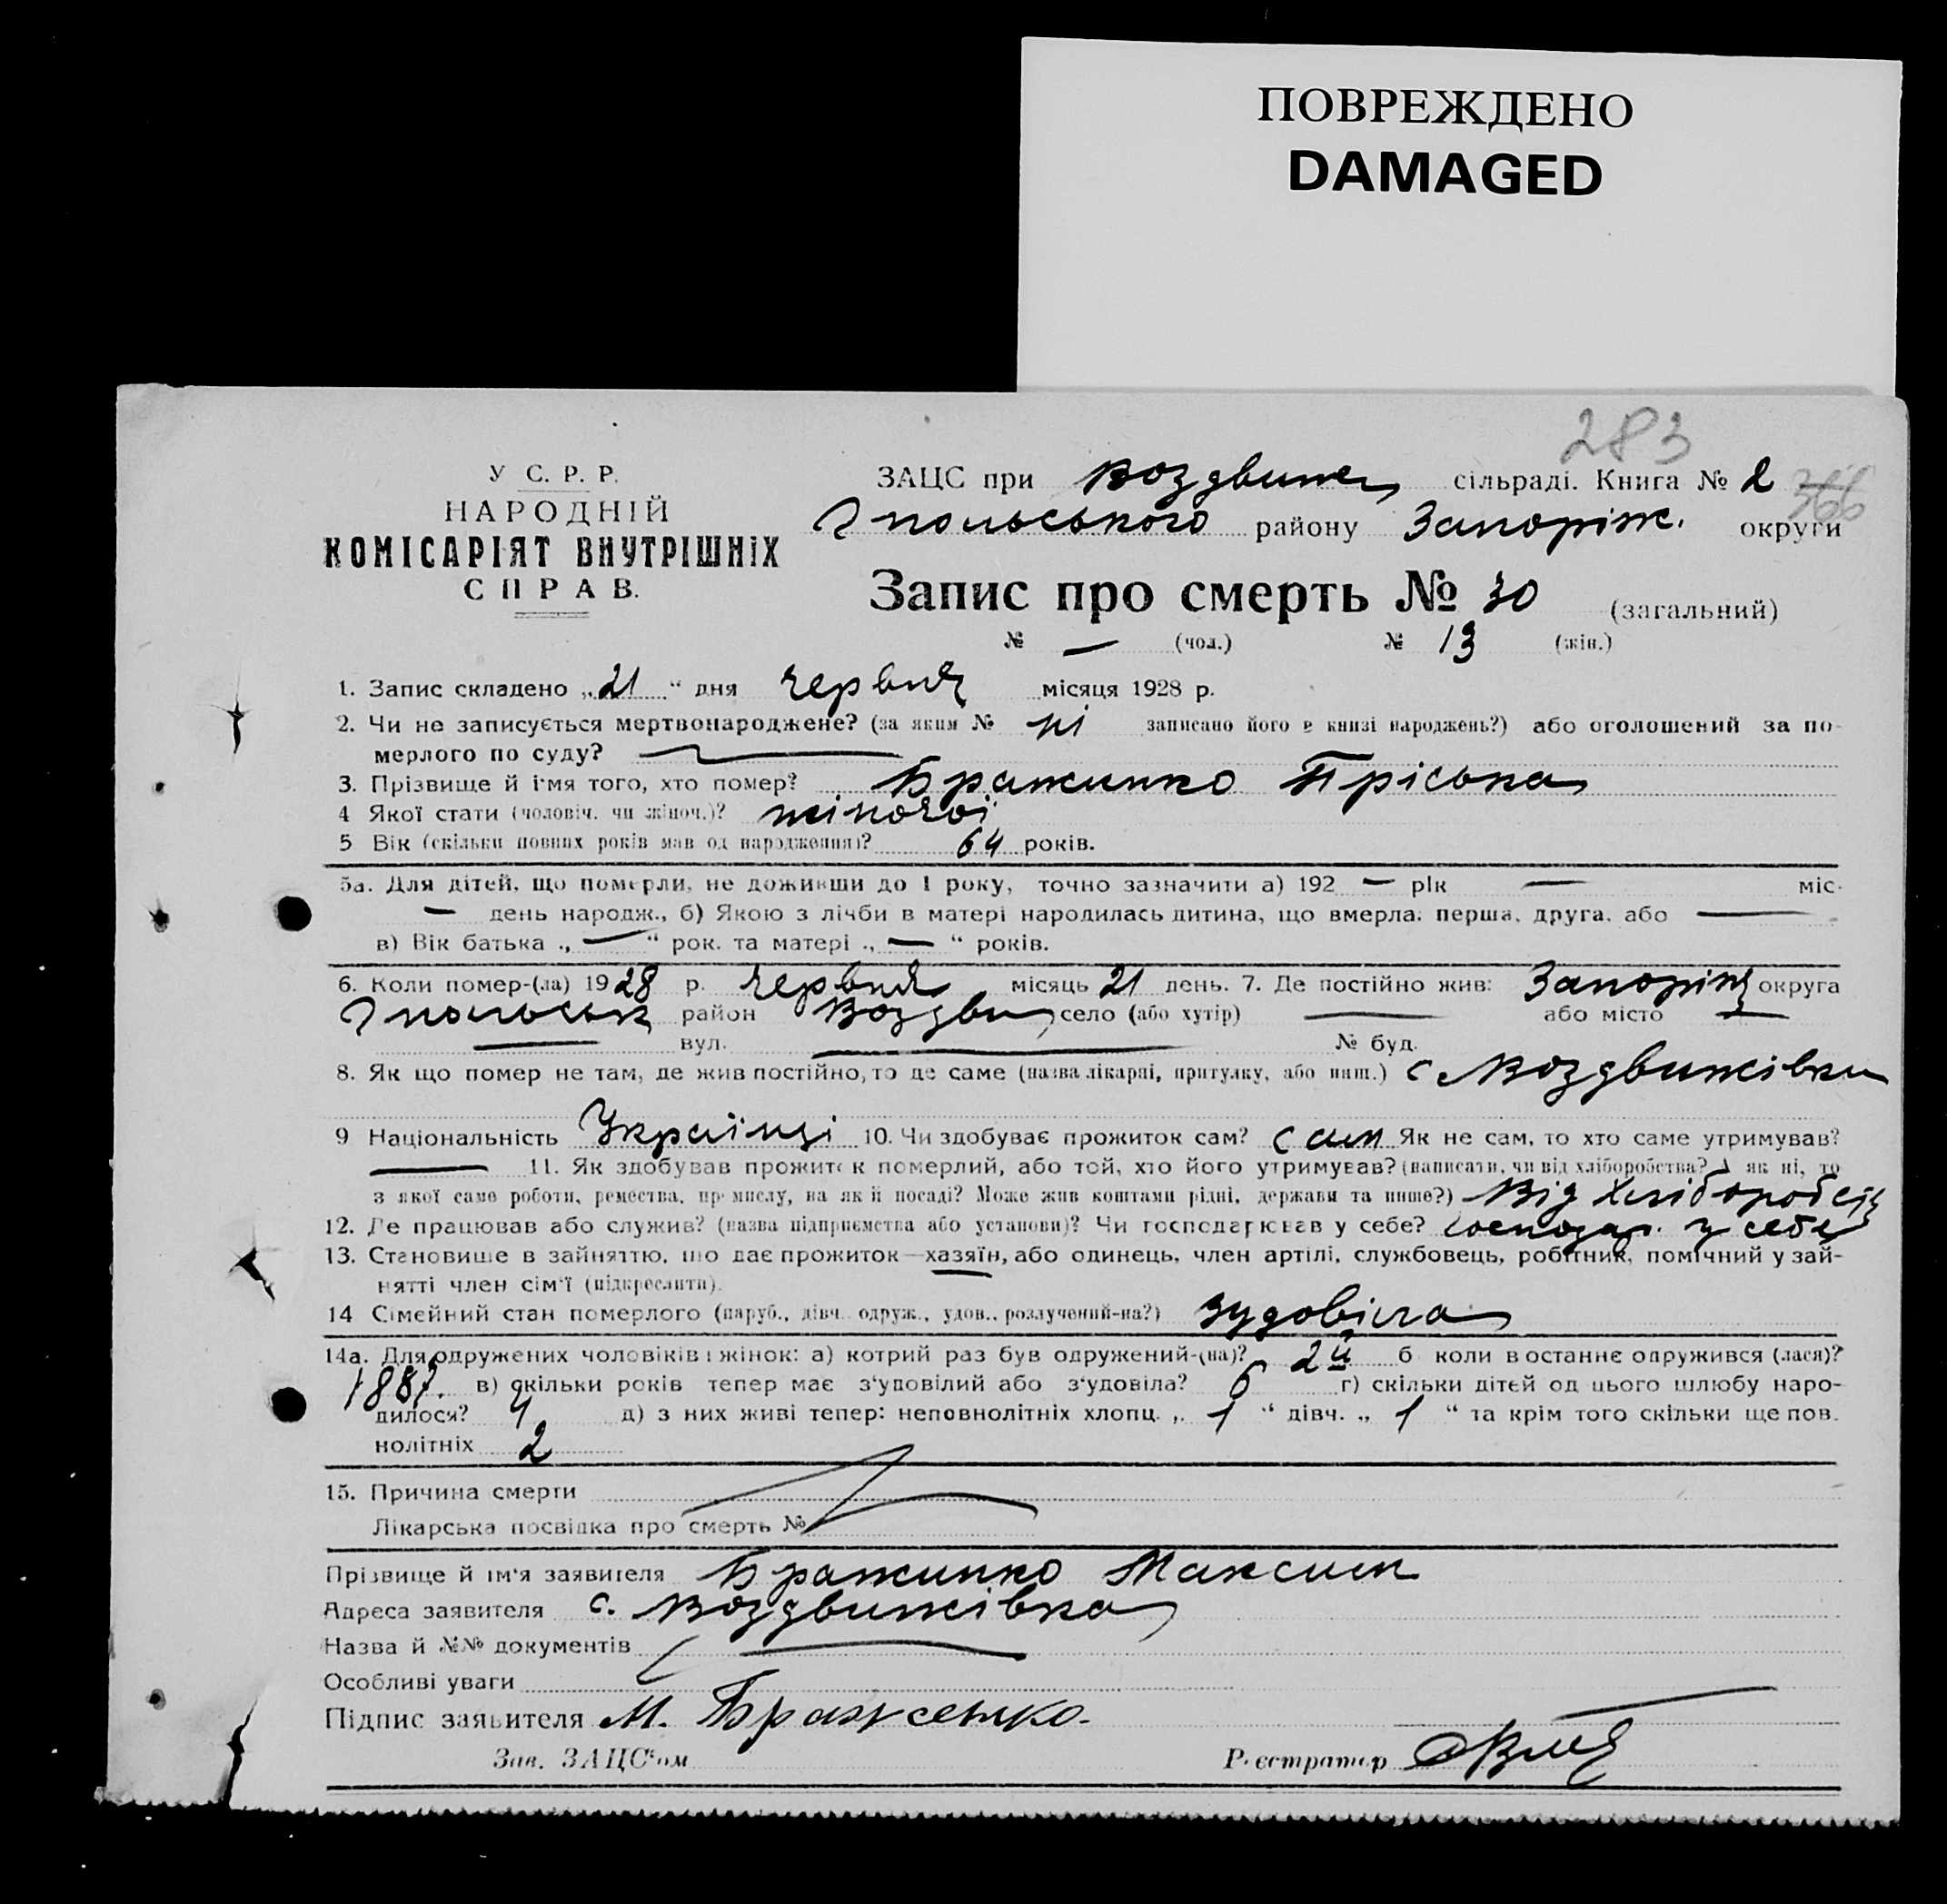 ПОВРЕЖДЕНО
DAMAGED
283
У С. Р. Р.
НАРОДНІЙ
КОМІСАРІЯТ ВНУТРІШНІХ
СПРАВ.
ЗАЦС при Воздвижен сільраді. Книга № 2
366
Гпольського району Запоріж. округи
Запис про смерть № 30 (загальний)
№ — (чол.) № 13 (жін.)
1. Запис складено „21“ дня червня місяця 1928 р.
2. Чи не записується мертвонароджене? (за яким № ні записано його в книзі народжень?) або оголошений за по-
мерлого по суду? —
3. Прізвище й ім'я того, хто помер? Бражинко Пріська
4 Якої стати (чоловіч. чи жіноч.)? жіночої
5 Вік (скільки повних років мав од народження)? 64 років.
5а. Для дітей, що померли, не доживши до 1 року, точно зазначити а) 192 — рік — міс.
— день народж., б) Якою з лічби в матері народилась дитина, що вмерла: перша, друга, або —
в) Вік батька „—“ рок. та матері „—“ років.
6. Коли помер-(ла) 1928 р. червня місяць 21 день. 7. Де постійно жив: Запоріж округа
Гпольськ район Воздви село (або хутір) — або місто —
— вул. — № буд.
8. Як що помер не там, де жив постійно, то де саме (назва лікарні, притулку, або инш.) с Воздвижівки
9 Національність Українці 10. Чи здобуває прожиток сам? сам Як не сам, то хто саме утримував?
— 11. Як здобував прожиток померлий, або той, хто його утримував? (написати, чи від хліборобства? А як ні, то
з якої саме роботи, ремества, промислу, на якій посаді? Може жив коштами рідні, держави та инше?) Від Хліборобст
12. Де працював або служив? (назва підприємства або установи)? Чи господарював у себе? господар. у себе
13. Становище в зайняттю, що дає прожиток—хазяїн, або одинець, член артілі, службовець, робітник, помічний у зай-
нятті член сім'ї (підкреслити).
14 Сімейний стан померлого (паруб., дівч. одруж., удов., розлучений-на?) зудовіла
14а. Для одружених чоловіків і жінок: а) котрий раз був одружений-(на)? 2й б коли в останнє одружився (лася)?
1887. в) скільки років тепер має з'уповілий або з'удовіла? 6 г) скільки дітей од цього шлюбу наро-
дилося? 4 д) з них живі тепер: неповнолітніх хлопц. „1“ дівч. „1“ та крім того скільки ще пов.
нолітніх 2
15. Причина смерти
Лікарська посвідка про смерть №
Прізвище й ім'я заявителя Бражинко Максим
Адреса заявителя с. Воздвижівка
Назва й №№ документів —
Особливі уваги
Підпис заявителя М. Браженко.
Зав. ЗАЦС'ом Реєстратор